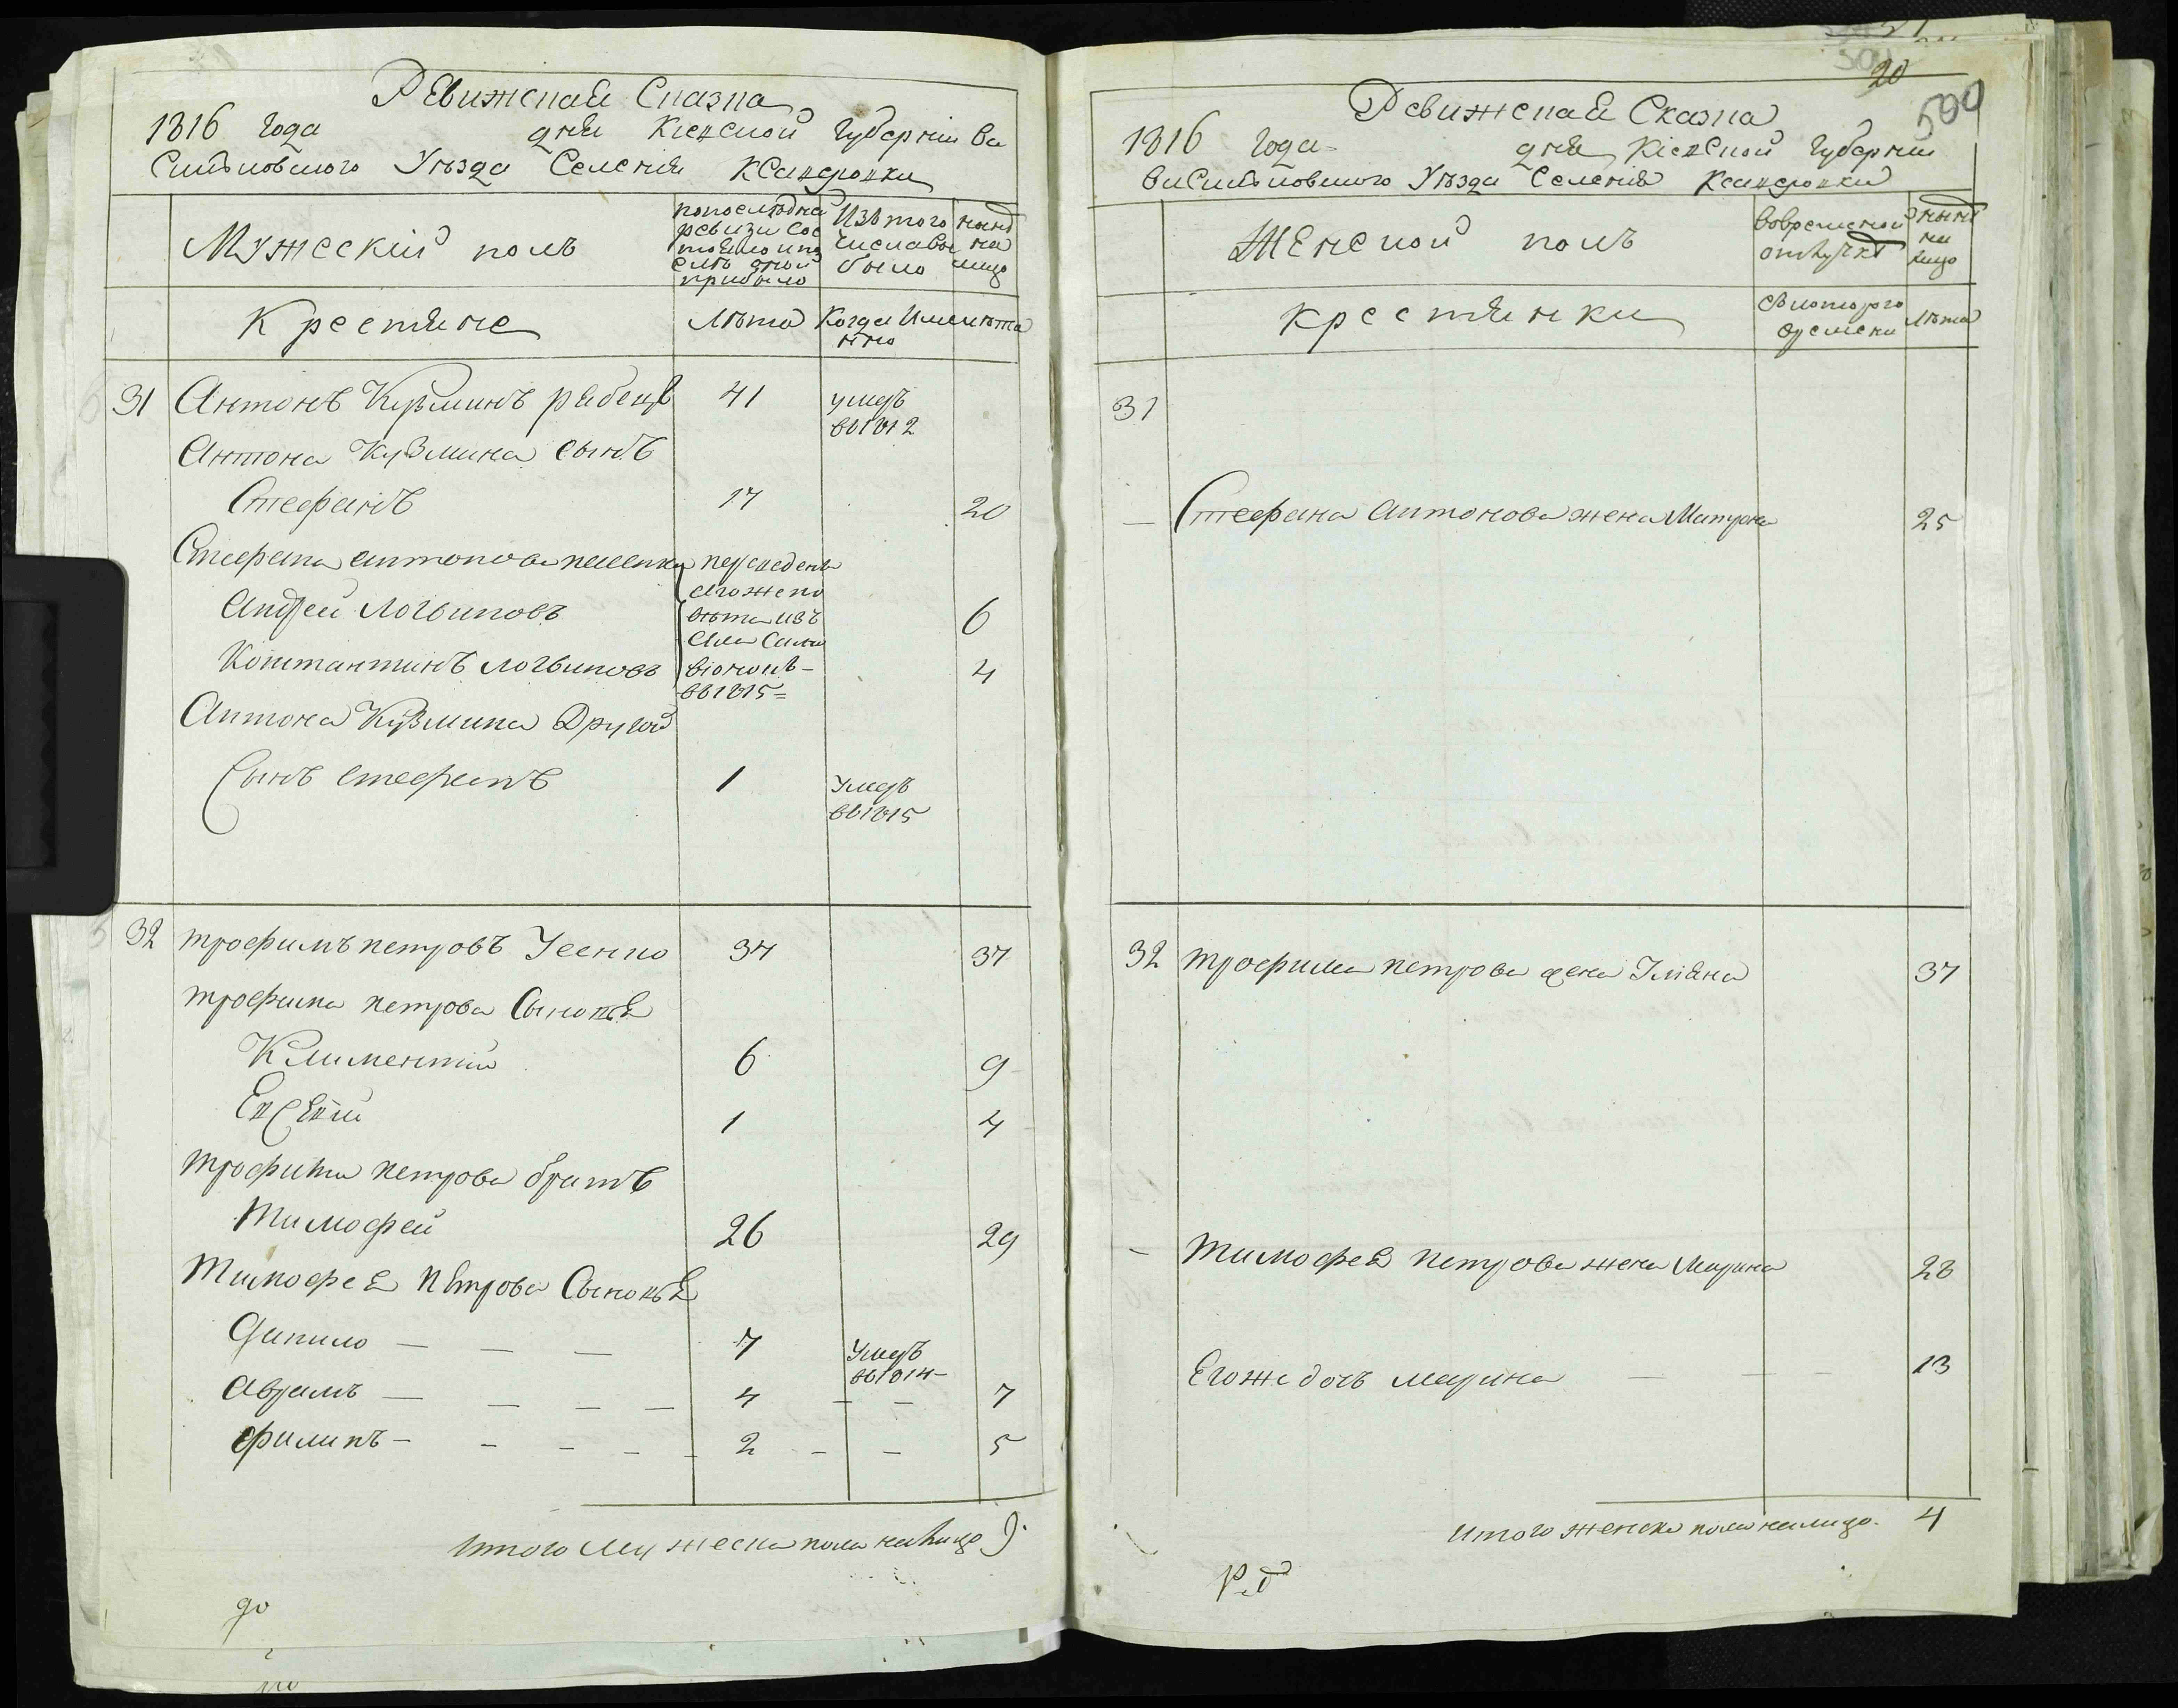 Ревижская Сказка
1816 года дня Кіевской Губерніи Ва
сильковского Уѣзда Селенія Ксаверовки
Мужескій полъ
попослѣдней
ревизіи сос
тояло и по
слѣ оной
прибыло
Изътого
числа вы
было
нынѣ
на
лицо
Крестяне
Лѣта
Когда Имен
нно
лѣта
31 Антонъ Кузминъ рабецъ 41 умеръ
въ 1812
Антона Кузмина сынъ
Стефанъ 17 20
Стефана антонова
переведены
Андрей Логвиновъ 6
Константинъ Логвиновъ 4
въ 1815
Антона Кузмина Другой
Сынъ стефанъ 1 Умеръ
въ 1815
32 трофимъ петровъ Усенко 34 37
трофима петрова Сыновья
Климентій 6 9
Евсевій 1 4
трофима петрова братъ
Тимофей 26 29
Тимофея Петрова Сыновья
Данило 7 Умеръ
въ 1814
Аврамъ 4 7
филипъ 2 5
Итого Мужеска пола налицо 9
до
20
500
Ревижская Сказка
1816 года дня Кіевской Губерніи
Васильковского Уѣзда Селенія Ксаверовки
Женской полъ
Вовременной
отлучкѣ
нынѣ
на
лицо
крестянки
Скоторого
времени
Лѣта
31
Стефана Антонова жена Матрона 25
32 трофима петрова жена Уліяна 37
Тимофея петрова жена Марина 28
Егожедочь марина 13
Итого женска пола налицо 4